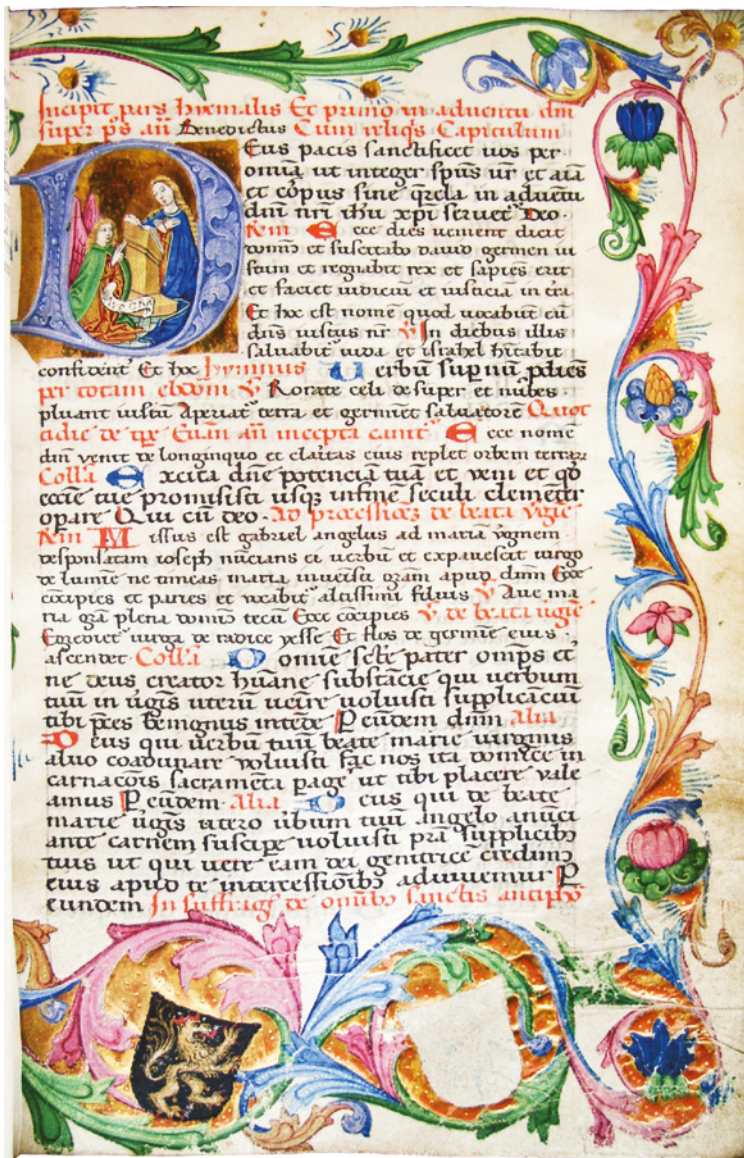 Incipit pars hyemalis Et primo in adventu dni
super ps an Benedictus Cum reliqs Capitulum
Deus pacis sanctificet uos per
omia ut integer spus ur et aia
et corpus sine qrela in aduetu
dni nri ihu xpi seruet Deo.
Rem Ecce dies ueniunt dicit
domin et suscitabo dauid germen iu
stum et regnabit rex et sapies erit
et faciet iudiciu et iusticia in tra
Et hoc est nome quod uocabut eu
dns iustus nr V In diebus illis
saluabit iuda et israhel hitabit
confident Et hoc hymnus Uerbu supnu pdies
per totam ebdom V Rorate celi desuper et nubes
pluant iustu Aperiat terra et germiet saluatore Quot
tidie de tpe Euan an incepta canit Ecce nome
dni venit de longinquo et claritas eius replet orbem terrar
Colla Excita dne potencia tua et veni et qd
eccie tue promisisti usqz infine seculi clementer
opare Qui cu deo. Ad processioes de beata vgie
Rem Missus est gabriel angelus ad maria vginem
desponsatam ioseph nucians ei uerbu et expauescit uirgo
de lumie ne timeas maria inuenisti gram apud dnm Ecce
cocipies et paries et vocabit altissimi filius V Aue ma
ria gra plena domin tecu Ecce cocipies V de beata uigie
Egrediet uirga de radice yesse Et flos de germie eius
ascendet Colla Domie scte pater omps et
ne deus creator huane substacie qui uerbum
tuu in ugis uteru ueire uoluisti supplicaciu
tibi pces benignus intede P eundem dnm Alia
Deus qui uerbu tuu beate marie uirginis
aluo coadunare voluisti fac nos ita domice in
carnacois sacrameta page ut tibi placere vale
amus P eundem. Alia Deus qui de beate
marie ugis utero ubum tuu angelo anuci
ante carnem suscipe uoluisti pra supplicibz
tuis ut qui uere eam dei genitrice credimz
eius apud te intercessioibz adiuuemur P
eundem In suffrag de omibz sanctis antiph